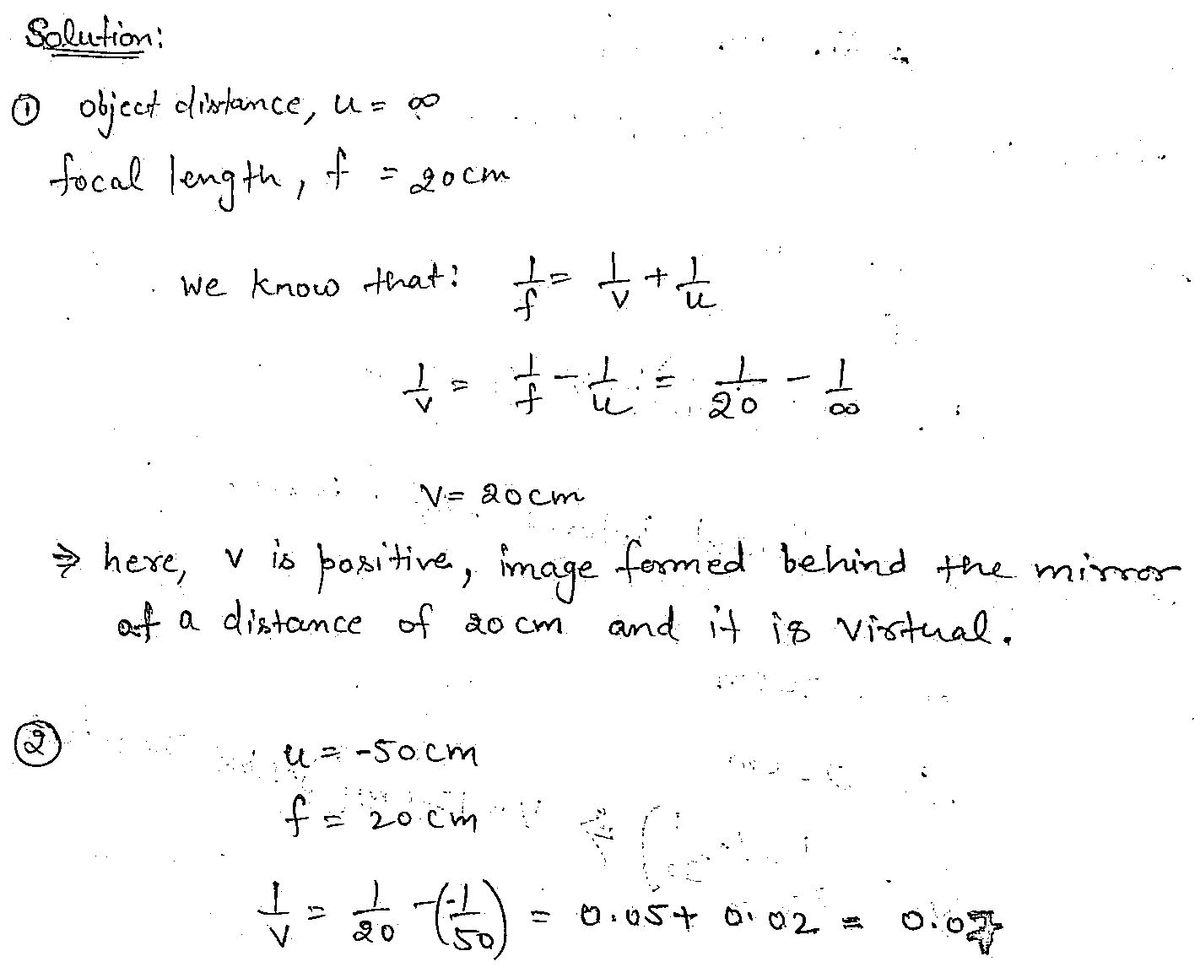 Solution:
① object distance, u = ∞
focal length, f = 20cm
we know that: 1/f = 1/v + 1/u
1/v = 1/f - 1/u = 1/20 - 1/∞
v = 20cm
⇒ here, v is positive, image formed behind the mirror
at a distance of 20 cm and it is virtual.
② u = -50cm
f = 20 cm
1/v = 1/20 - (-1/50) = 0.05 + 0.02 = 0.07